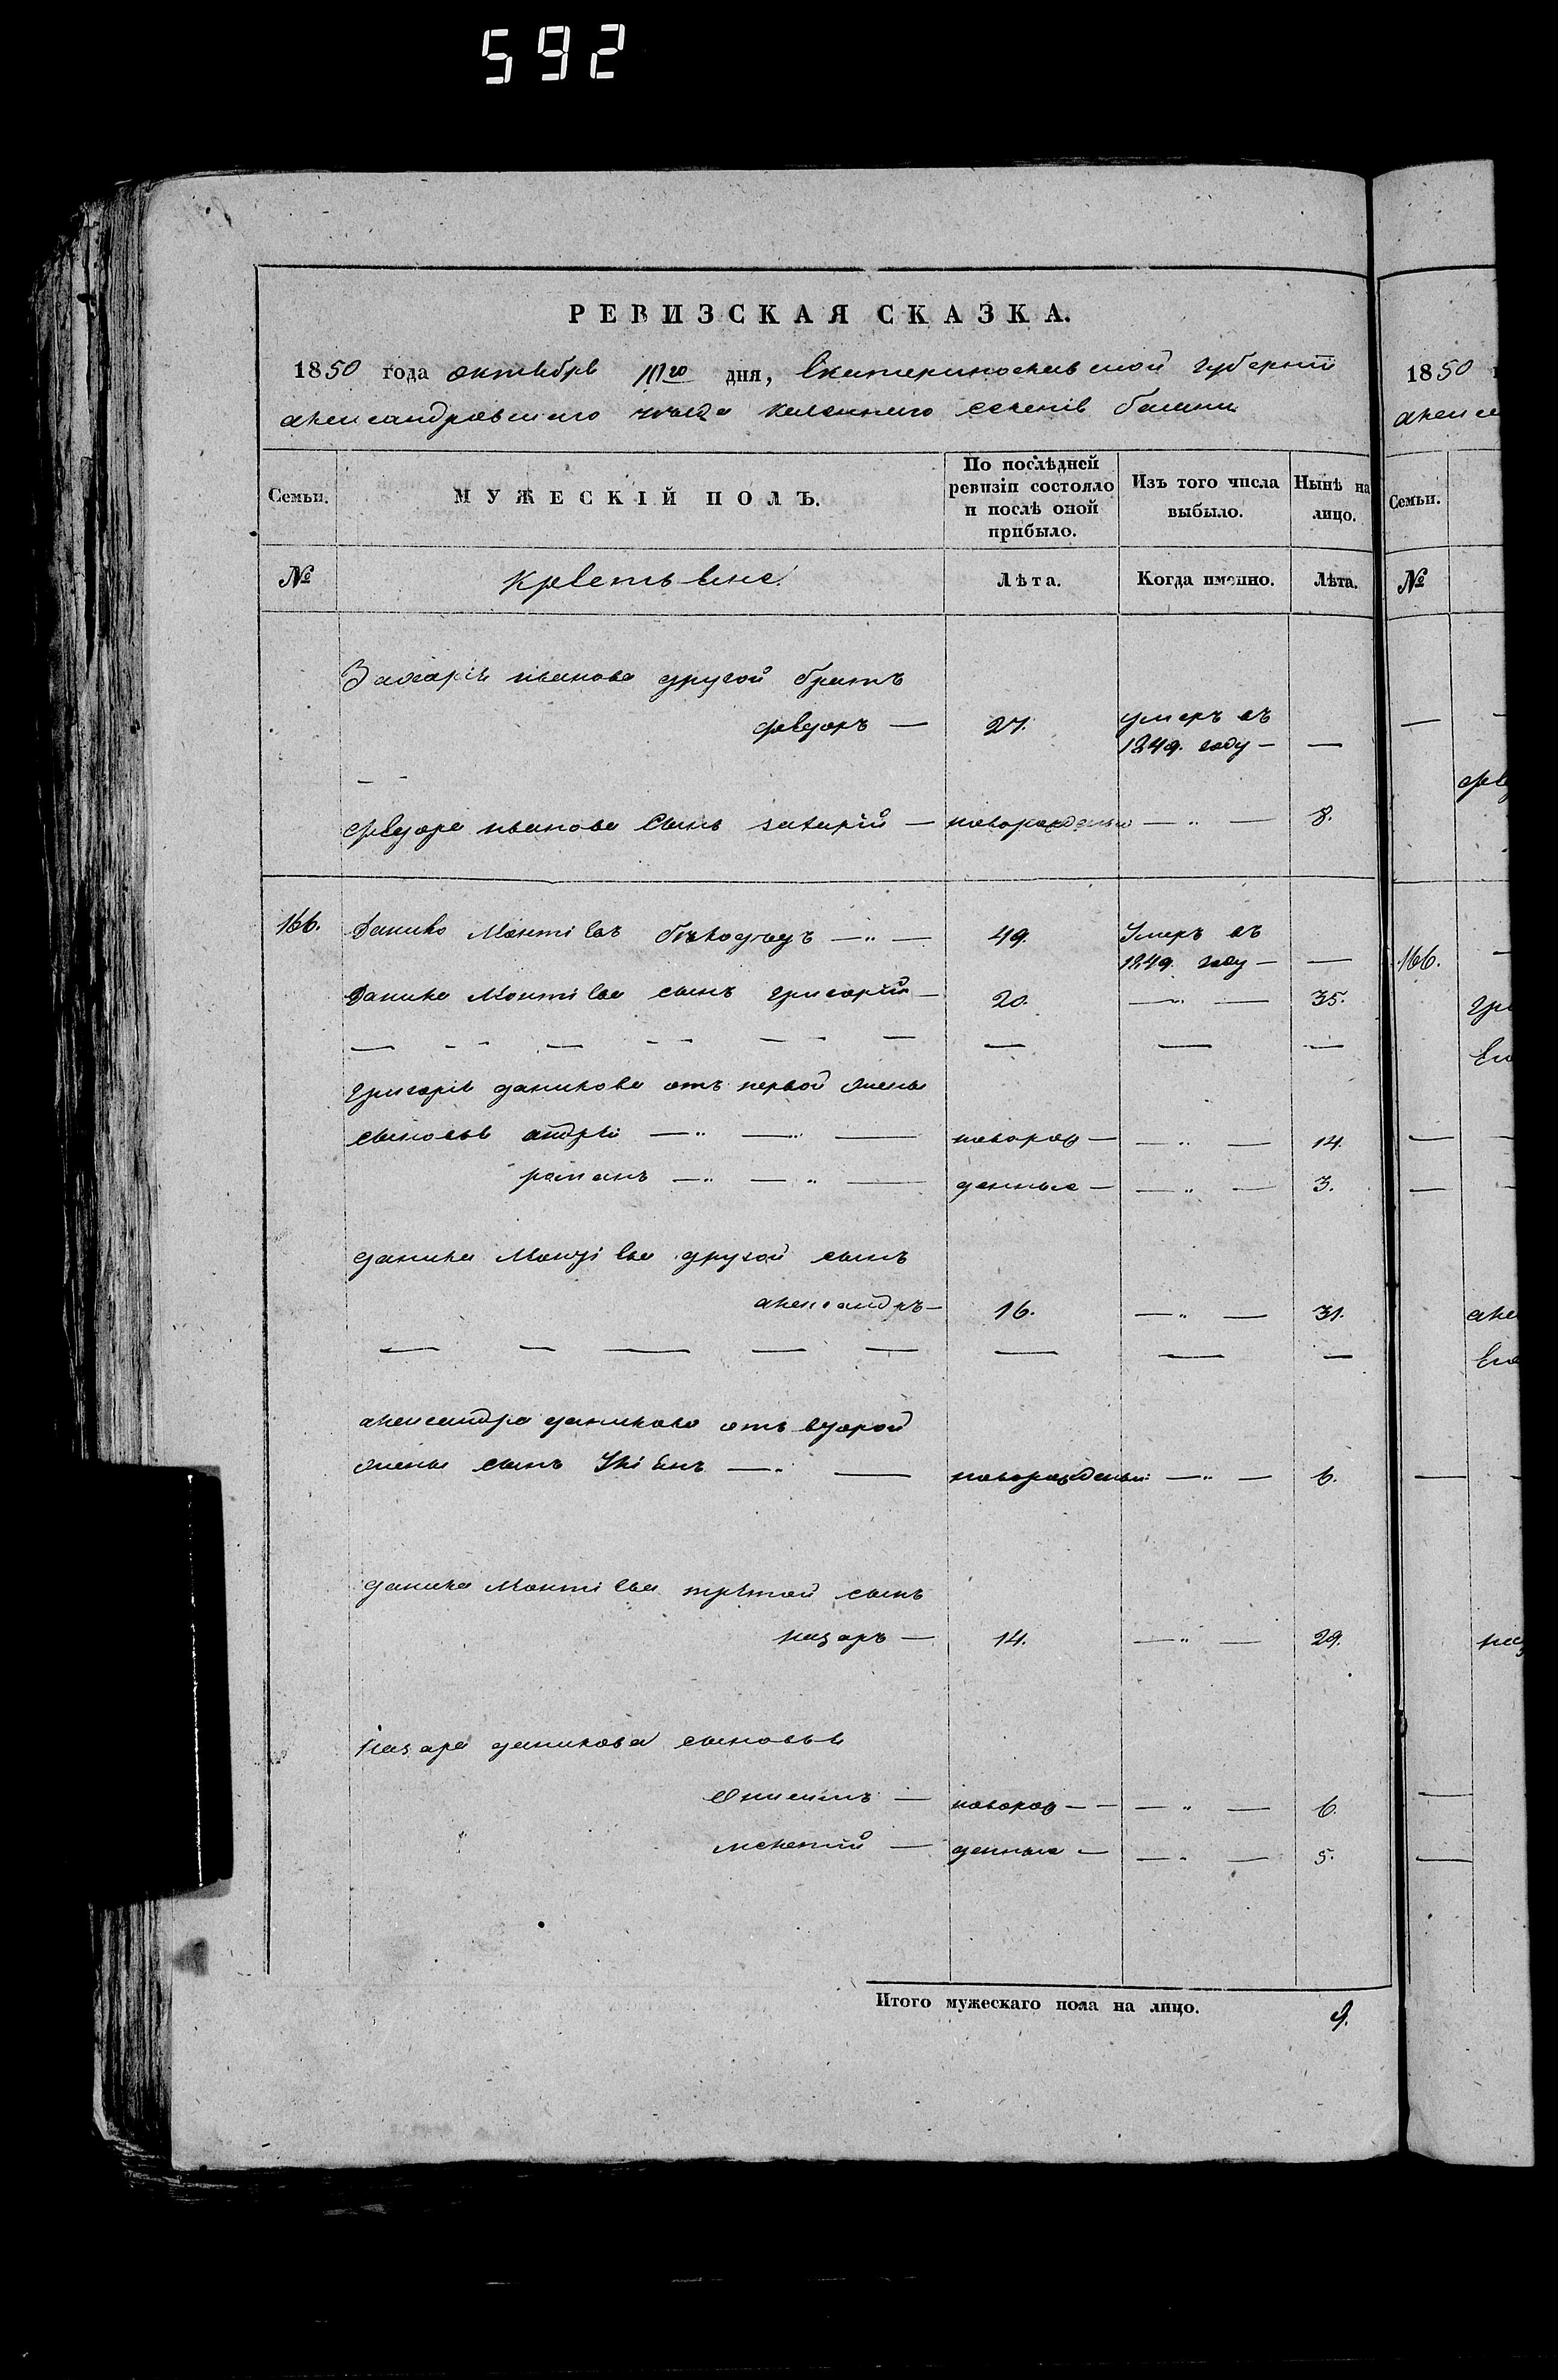 592
РЕВИЗСКАЯ СКАЗКА.
1850 года октября дня, Екатеринославской губерніи
александровскаго уезда казеннаго селенія
Семьи.
МУЖЕСКІЙ ПОЛЪ.
По послѣдней ревизіи состояло и послѣ оной прибыло.
Изъ того числа выбыло.
Нынѣ на лицо.
№
крестьяне
Лѣта.
Когда именно.
Лѣта.
Захарія иванова другой братъ
федоръ — 27. умеръ въ
1849. году — —
федора иванова сынъ захарій — новорожденный — „ — 8.
166. Данило Моктіевъ — „ — 49. Умеръ въ
1849. году — —
Данила Моктіева сынъ григорій — 20. — „ — 35.
григорія данилова отъ первой жены
сыновья андрей — „ — „ — новорож — — „ — 14.
романъ — „ — „ — денные — — „ — 3.
данила Моктіева другой сынъ
александръ — 16. — „ — 31.
александра данилова отъ второй
жены сынъ — „ — новорожденный — „ — 6.
данила Моктіева третой сынъ
назаръ — 14. — „ — 29.
назара данилова сыновья
Онисимъ — новорож — — — „ — 6.
— денные — — „ — 5.
Итого мужескаго пола на лицо. 9.
1850
Семьи.
№
166.